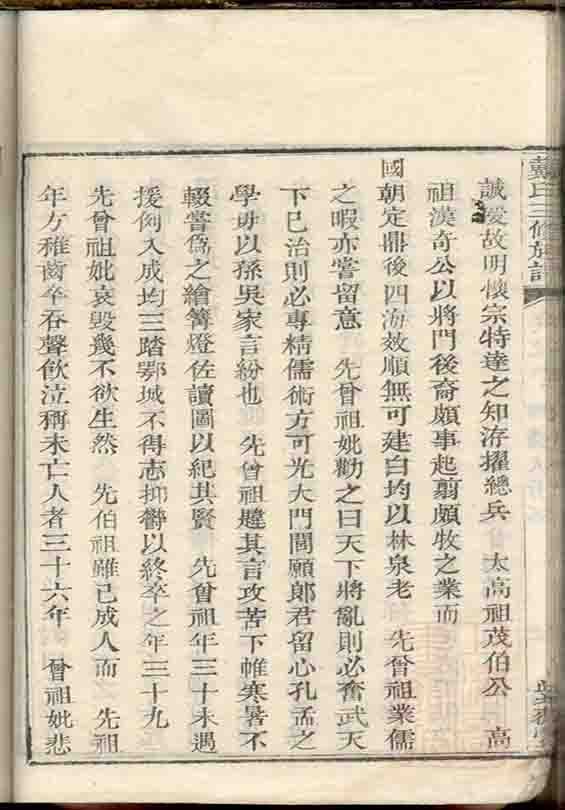 戴氏三修族譜
誠爰故明懷宗特達之知洊擢總兵 太高祖茂伯公 高
祖漢奇公以將門後裔頗事起翦頗牧之業而
國朝定鼎後四海效順無可建白均以林泉老 先曾祖業儒
之暇亦嘗留意 先曾祖妣勸之曰天下將亂則必奮武天
下已治則必專精儒術方可光大門閭願郎君留心孔孟之
學毋以孫吳家言紛也 先曾祖韙其言攻苦下帷寒暑不
輟嘗爲之繪篝燈佐讀圖以紀其賢 先曾祖年三十未遇
援例入成均三踏鄂城不得志抑鬱以終卒之年三十九
先曾祖妣哀毀幾不欲生然 先伯祖雖已成人而 先祖
年方稚齒卒吞聲飲泣稱未亡人者三十六年 曾祖妣悲